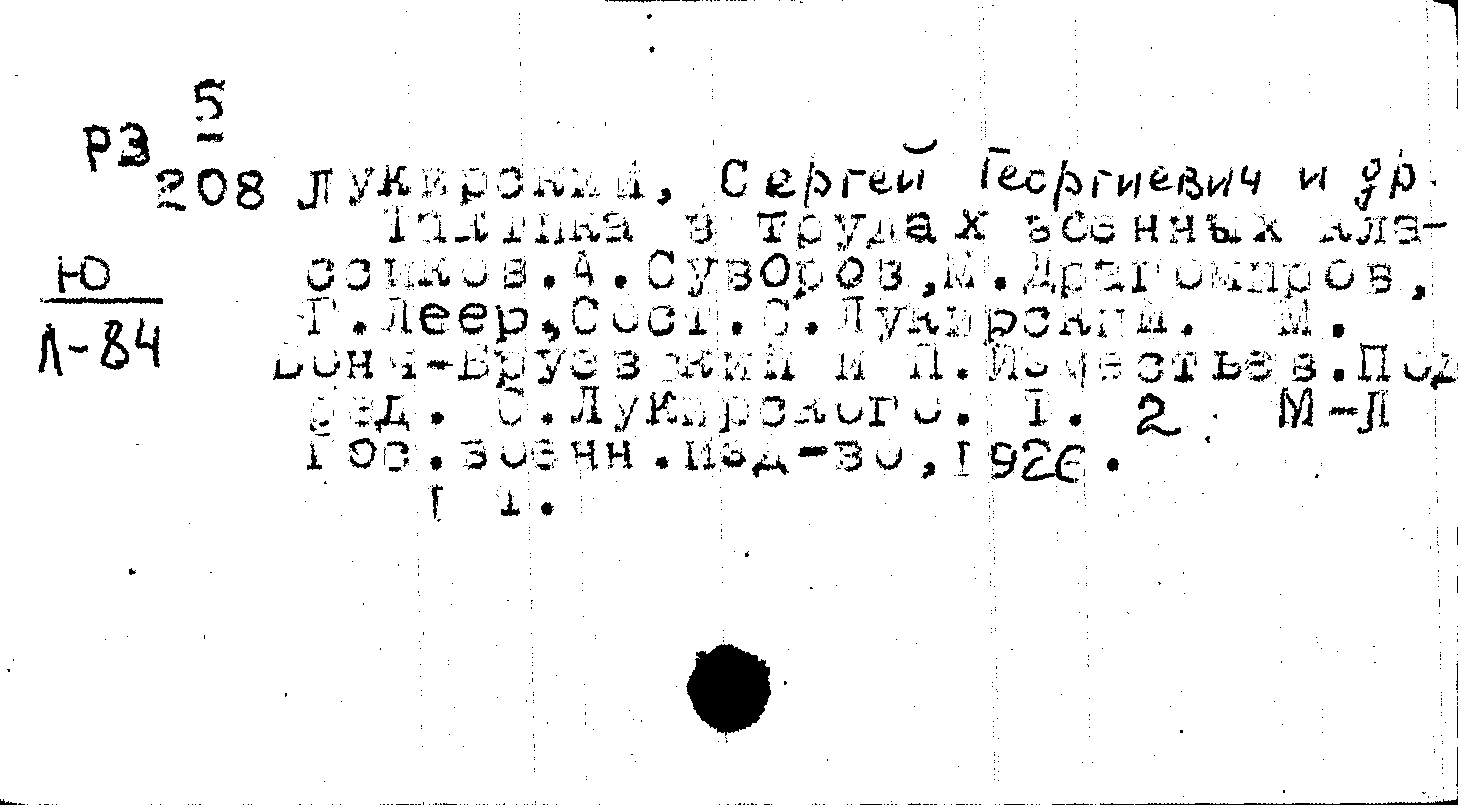 5
РЗ -
208 Лукирский, Сергей Георгиевич и др.
Тактика в трудах военных кла-
Ю ссиков.А.Суворов,М.Драгомиров,
Л-84 Г.Леер,Сост.С.Лукирский. М.
Бонч-Бруевский и П.Изместьев.Под
ред. С.Лукирского. I. 2 М-Л
Гос.военн.изд-во,1926.
I т.